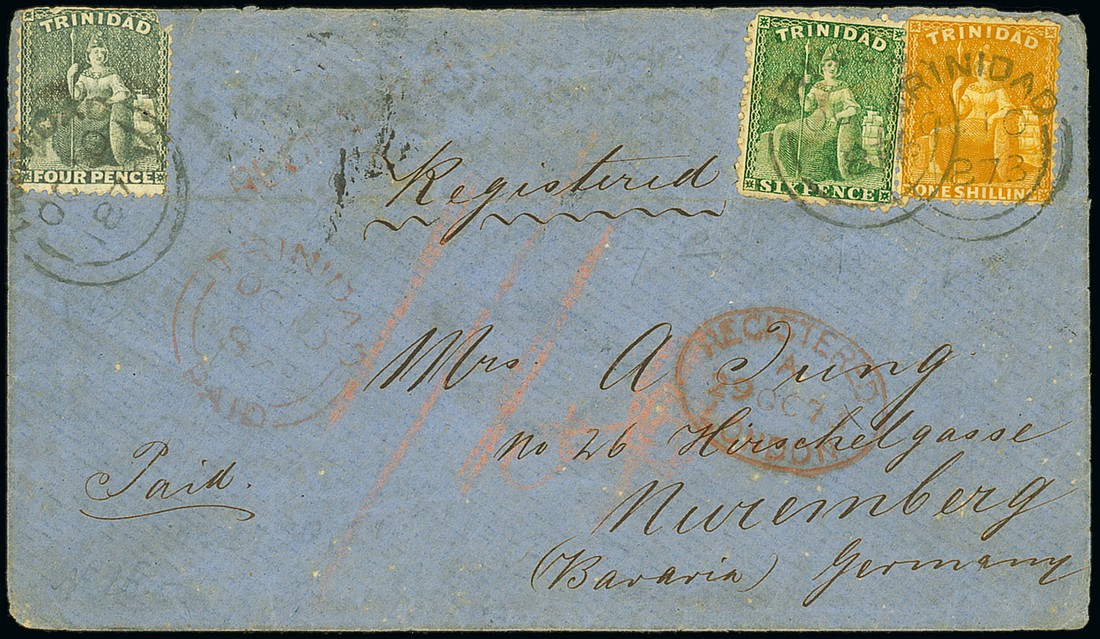 TRINIDAD
FOUR PENCE
TRINIDAD
SIX PENCE
TRINIDAD
ONE SHILLING
TRINIDAD
1873
Registered
TRINIDAD
OC
PAID
REGISTERED
A
29 OC 7
LONDON
Mrs. A Jung
no 26 Hirschelgasse
Nuremberg
(Bavaria) Germany
Paid.